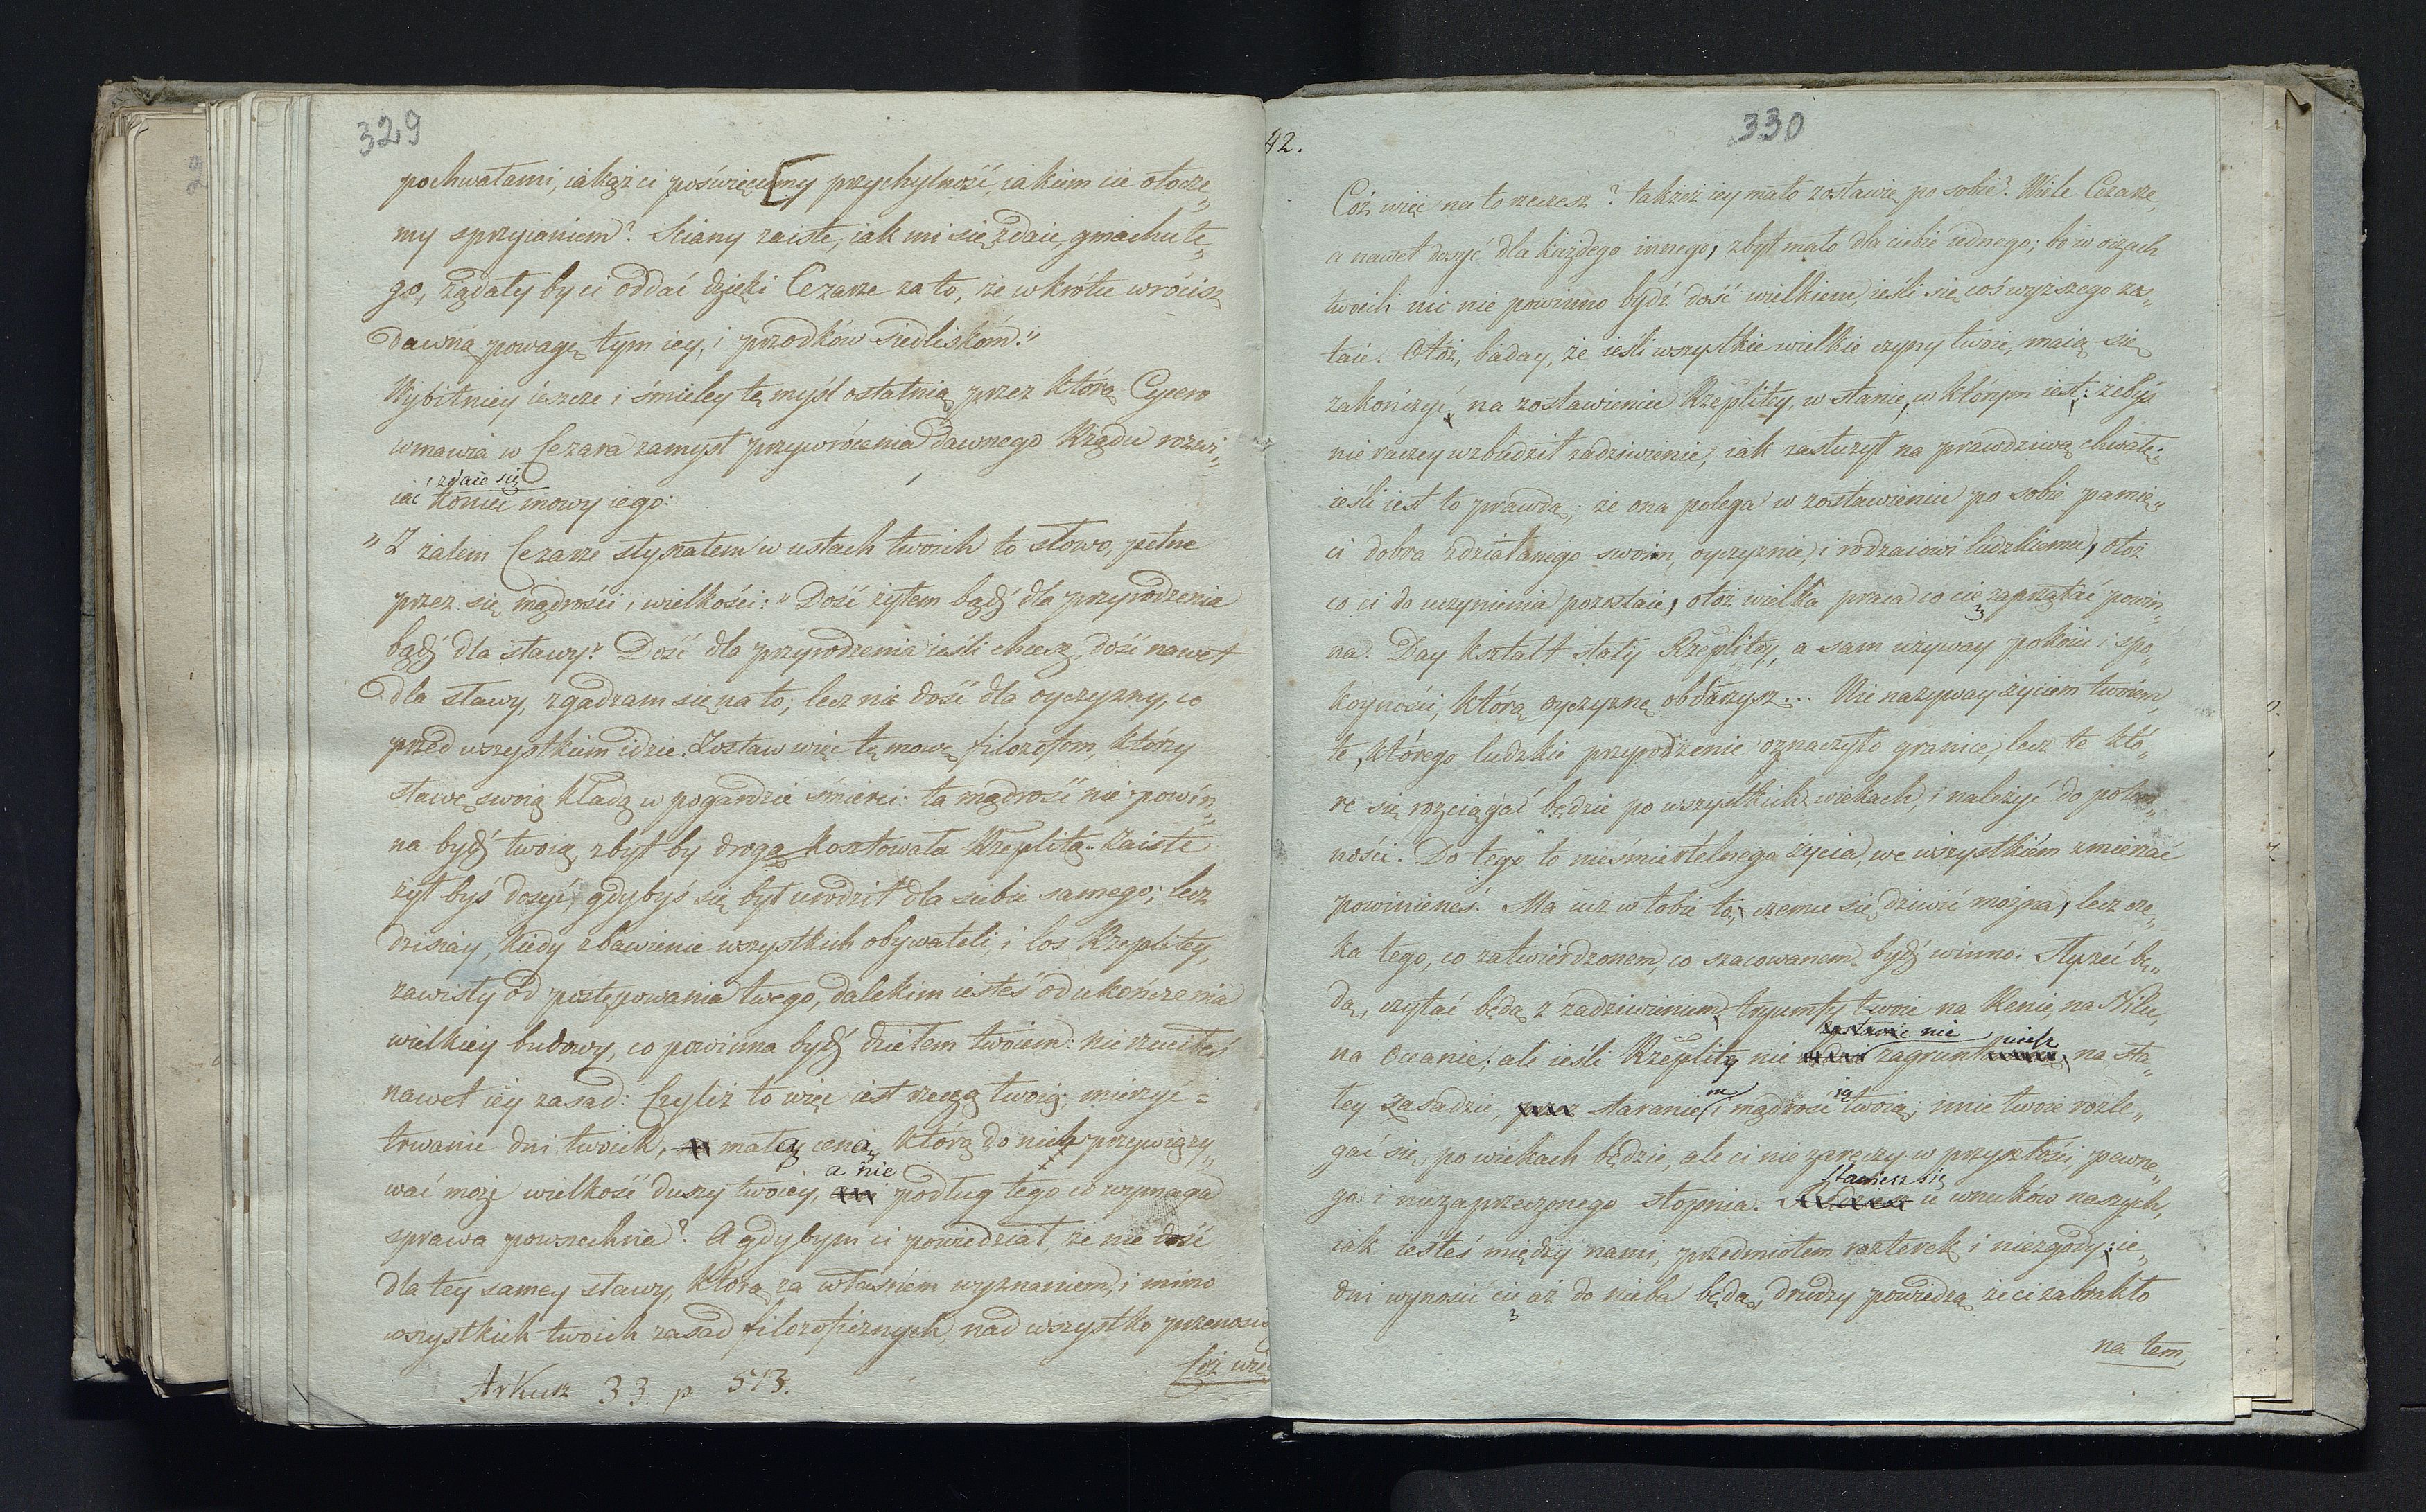 329
pochwałami, iakąż ci poświęcimy przychylność, iakiem cie otocze„
my sprzyianiem? Sciany zaiste, iak mi się zdaie, gmachu te„
go, żądały by ci oddać dzięki Cezarze za to, że wkrótce wrócisz
dawną powagę tym iey, i przodków siedliskóm."
Wybitniey ieszcze i śmieley tę myśl ostatnią przez którą Cycero
wmawia w Cezara zamysł przywrócenia dawnego Rządu rozwi„
zdaie się
iać koniec mowy iego:
" Z żalem Cezarze słyszałem w ustach twoich to słowo, pełne
przez się mądrości i wielkości: " Dość żyłem bądź dla przyrodzenia
bądź dla sławy." Dość dla przyrodzenia ieśli chcesz, dość nawet
dla sławy, zgadzam się na to; lecz nie dość dla oyczyzny, co
przed wszystkiem idzie. Zostaw więc tę mowę filozofom, którzy
sławę swoią kładą w pogardzie śmierci: ta mądrość nie powin„
na bydź twoią, zbyt by drogo kosztowała Rzeplitą. Zaiste
żył byś dosyć, gdybyś się był urodził dla siebie samego; lecz
dzisiay, kiedy zbawienie wszystkich obywateli, i los Rzeplitey,
zawisły od postępowania twego, dalekim iesteś od ukończenia
wielkiey budowy, co powinna bydź dziełem twoiem: nie rzuciłeś
nawet iey zasad: Czyliż to więc iest rzeczą twoią, mierzyć =
trwanie dni twoich, małą ceną, którą do nich przywiązy„
a nie
wać może wielkość duszy twoiey, podług tego co wymaga
sprawa powszechna? A gdybym ci powiedział, że nie dość
dla tey samey sławy, którą za własnem wyznaniem, i mimo
wszystkich twoich zasad filozoficznych, nad wszystko przenosisz
Cóż wię
Arkusz 33. p. 513.
42.
330
Cóż więc na to rzeczesz? takżeż iey mało zostawię po sobie? Wiele Cezarze,
a nawet dosyć dla każdego innego, zbyt mało dla ciebie iednego; bo w oczach
twoich nic nie powinno bydź dość wielkiem, ieśli się coś wyższego zos„
taie. Otóż, baday, że ieśli wszystkie wielkie czyny twoie, maią się
zakończyć na zostawieniu Rzeplitey, w stanie, w którym iest: żebyś
nie raczey wzbudził zadziwienie, iak zasłużył na prawdziwą chwałę;
ieśli iest to prawdą; że ona polega w zostawieniu po sobie pamię„
ci dobra zdziałanego swoim, oyczyznie, i rodzaiowi ludzkiemu, otóż
co ci do uczynienia pozostaie, otóż wielka praca co cię zaprzątać powin„
na. Day kształt stały Rzeplitey, a sam używay pokoiu i spo„
koyności, którą oyczyznę obdarzysz... Nie nazyway życiem twoiem,
te, którego ludzkie przyrodzenie oznaczyło granice, lecz te któ„
re się rozciągać będzie po wszystkich wiekach, i należyć do potom„
ności. Do tego to nieśmiertelnego życia, we wszystkiém zmierzać
powinieneś. Ma iuż w tobie to, czemu się dziwić można, lecz cze„
ka tego, co zatwierdzonem, co szacowanem bydź winno: Słyszeć bę„
dą, czytać będą z zadziwieniem tryumfy twoie na Renie, na Nilu,
nie
na Oceanie; ale ieśli Rzeplitą nie zagrunt na sta„
tey zasadzie, staraniem i mądrością twoią; imie twoie rozle„
gać się po wiekach będzie, ale ci nie zaręczy w przyszłości, pewne„
staniesz się
go i niezaprzeczonego stopnia. u wnuków naszych,
iak iesteś między nami, przedmiotem rozterek i niezgody: ie„
dni wynosić cię aż do nieba będą, drudzy powiedzą że ci zabrakło
na tem,